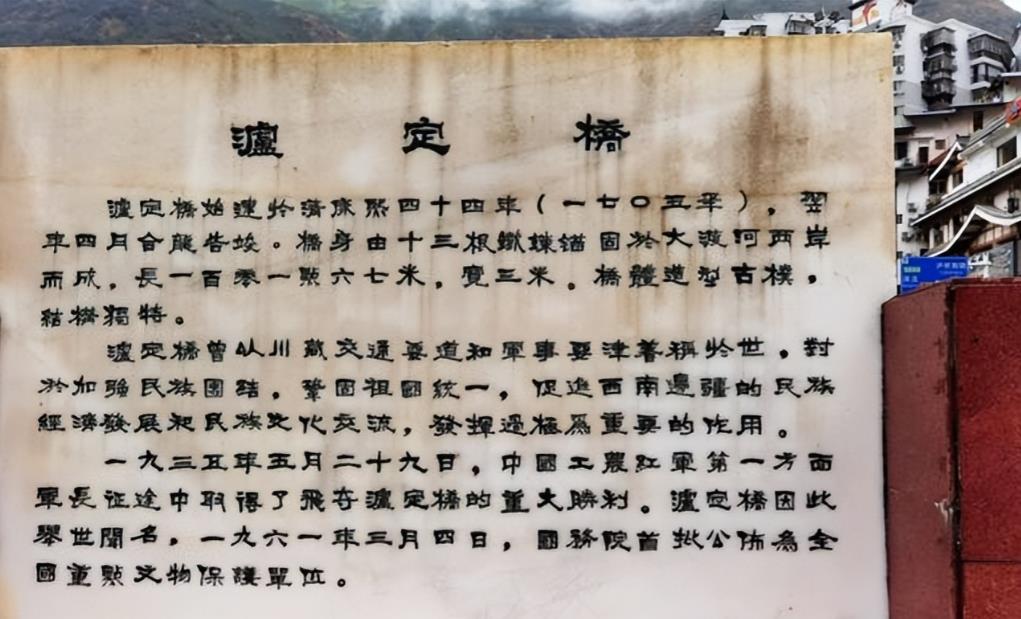 瀘定橋
瀘定橋始建於清康熙四十四年(一七〇五年),翌
年四月合龍告竣。橋身由十三根鐵鍊錨固於大渡河兩岸
而成,長一百零一點六七米,寬三米。橋體造型古樸,
結構獨特。
瀘定橋曾以川藏交通要道和軍事要津著稱於世,對
於加強民族團結,鞏固祖國統一,促進西南邊疆的民族
經濟發展和民族文化交流,發揮過極爲重要的作用。
一九三五年五月二十九日,中國工農紅軍第一方面
軍長征途中取得了飛奪瀘定橋的重大勝利。瀘定橋因此
舉世聞名,一九六一年三月四日,國務院首批公佈為全
國重點文物保護單位。